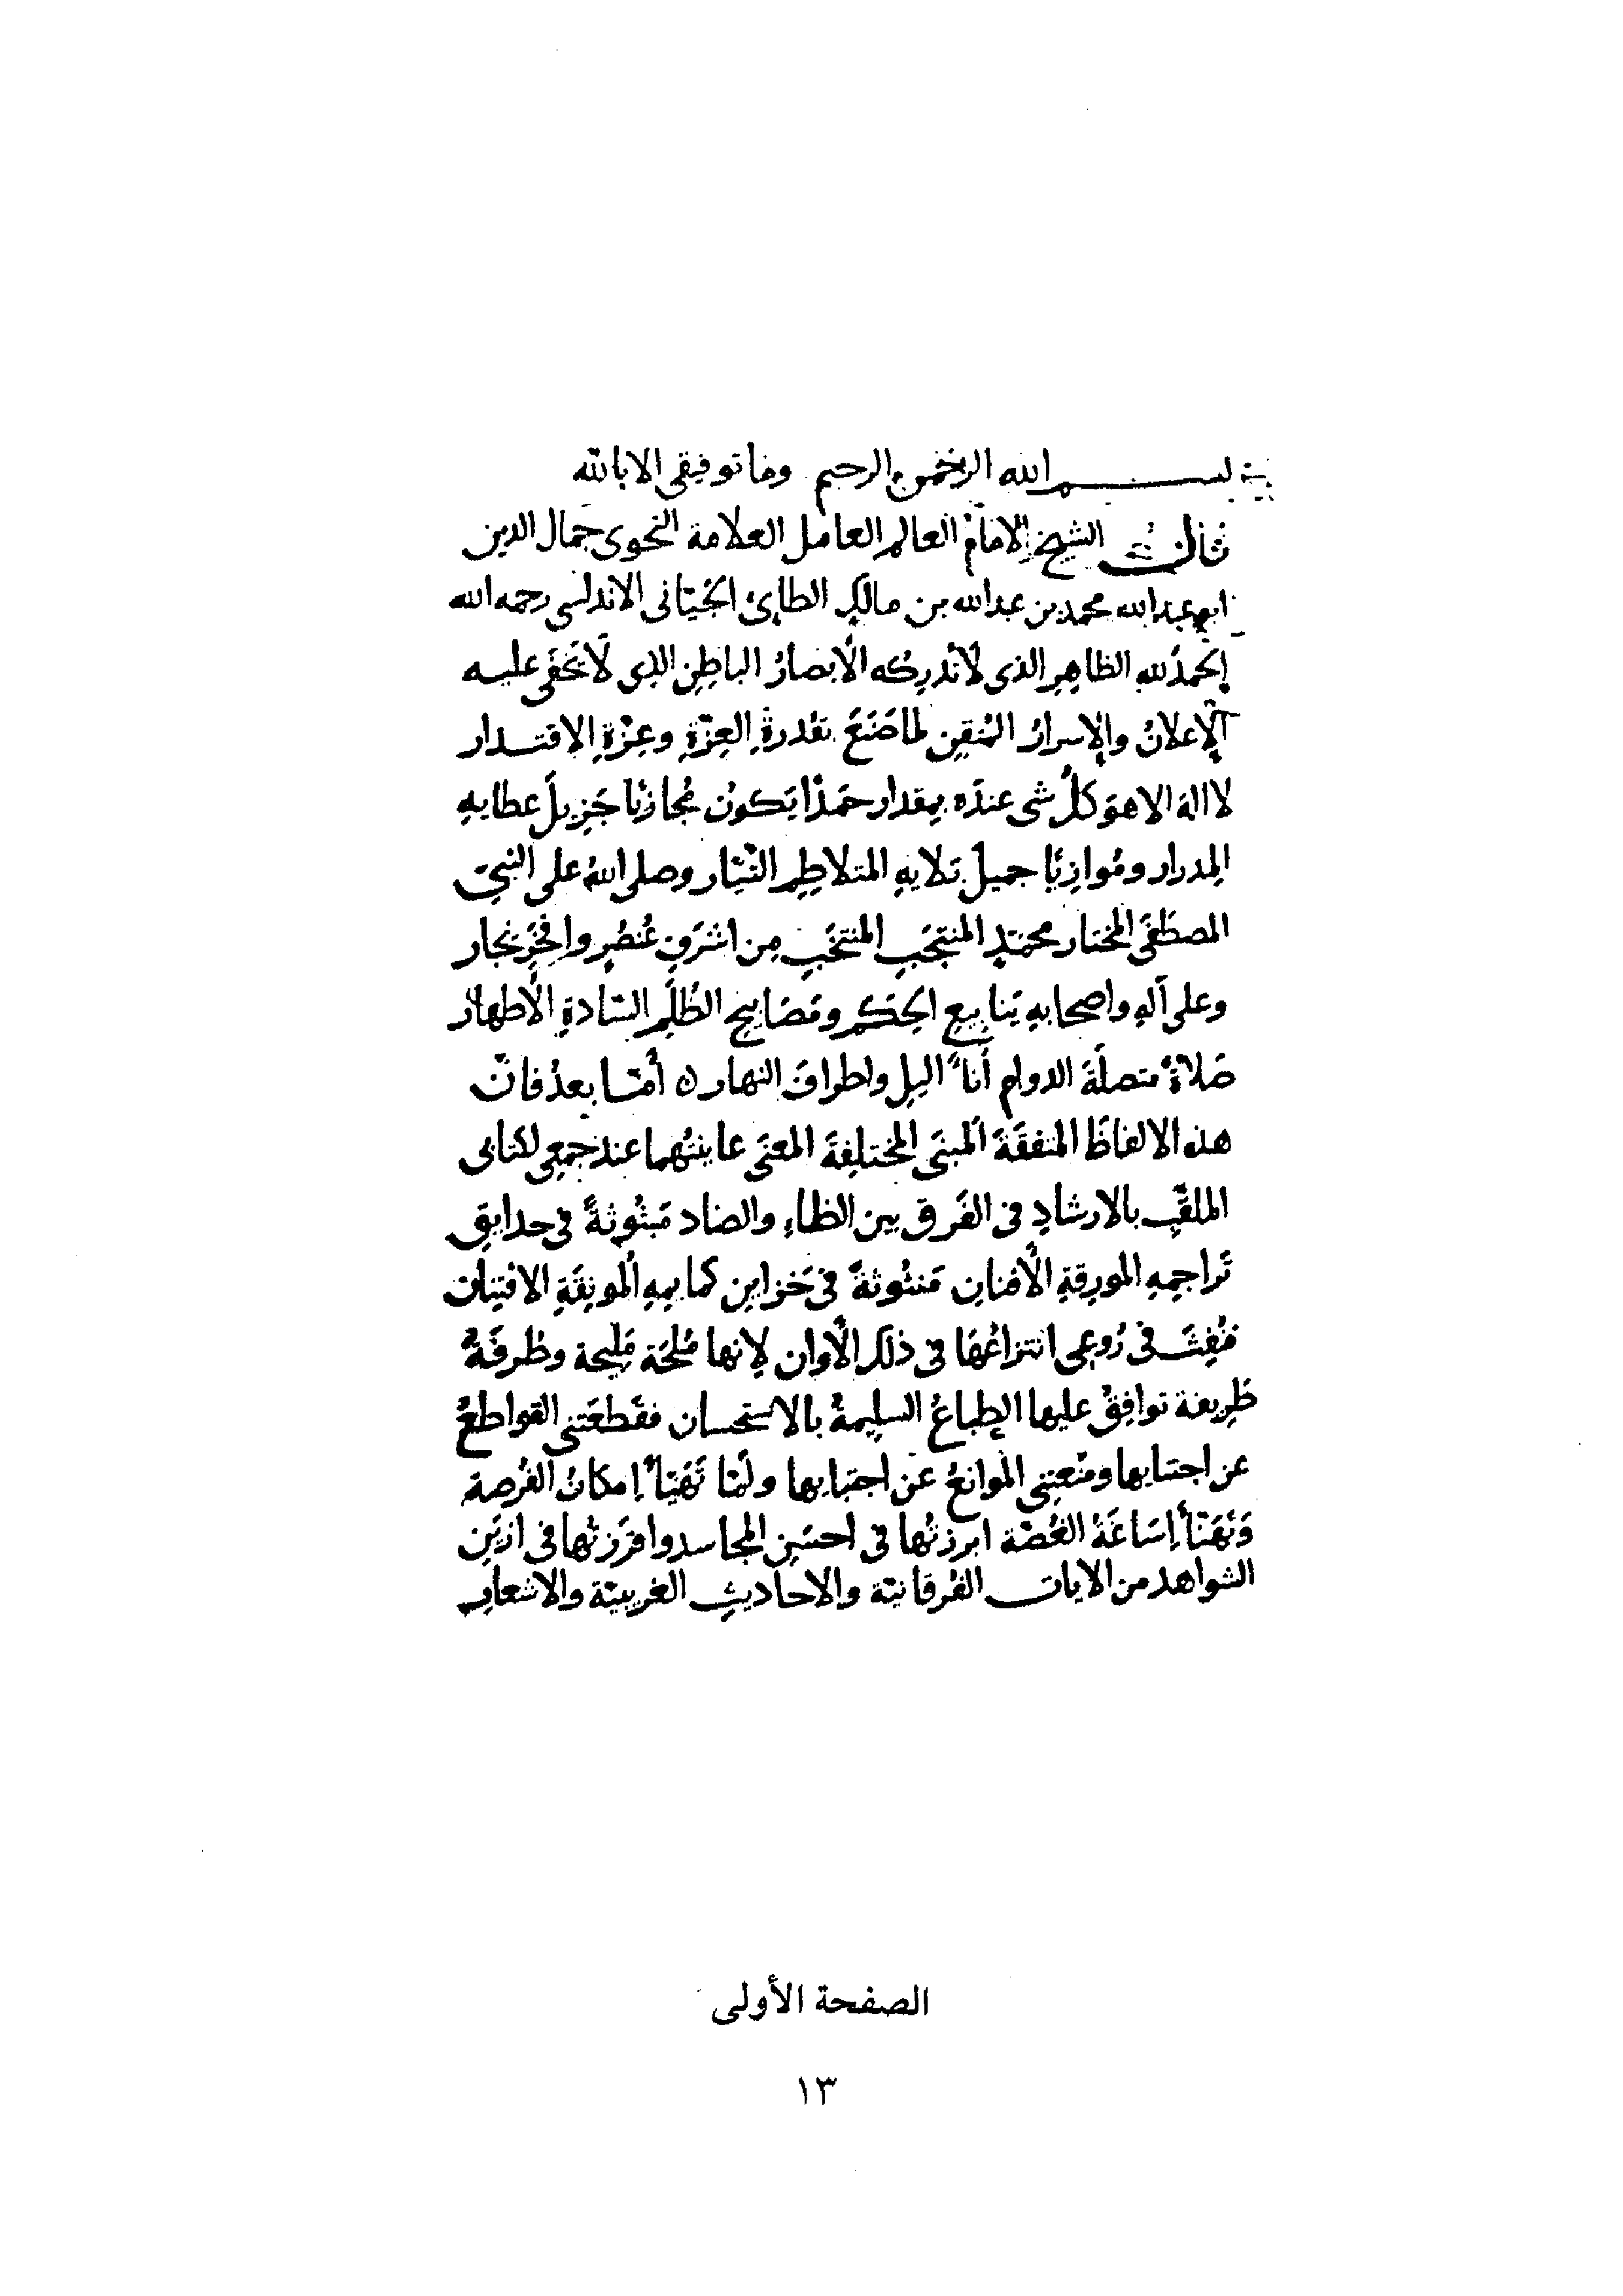 بسم الله الرحمن الرحيم وما توفيقى الا بالله
قال الشيخ الامام العالم العامل العلامة النحوى جمال الدين
ابو عبد الله محمد بن عبد الله بن مالك الطائى الجيّانى الاندلسى رحمه الله
الحمدُ للهِ الظاهِرِ الذى لا تُدركه الأبصارُ الباطِنِ الذى لَا تَخفَى عليه
الإعلانُ والإسرارُ المُتقِنِ لما صَنَعَ بقُدرةِ العِزّةِ وعِزّةِ الاقتدار
لا اله الا هو كلُّ شى عندَه بمقدار حمَدًا يَكونُ مُجازيًا جَزِيلَ عطايهِ
المِدرار ومُوازِيًا جميلَ بَلايهِ المتلاطِمِ التَّيّار وصلى اللهُ على النبىّ
المصطَفَى المختار محمّدٍ المنتجَبِ المنتخَبِ مِن اشرَفِ عُنصُرٍ وافخَرِ نجار
وعلى آلهِ واصحابهِ يَنابيعِ الحِكَمِ ومَصَابيحِ الظُلَمِ السّادةِ الأطهار
صَلاةً متصلَةَ الدوام أناءَ اليل واطرافَ النهار ه أمّا بعدُ فانّ
هذه الالفاظَ المتفقَةَ المَبنَى المختلِفةَ المعنَى عاينتُهما عند جمعِى لكتابى
الملقَّبِ بالارشادِ فى الفَرق بين الظاءِ والضاد مَبثُوثةً فى حدايقِ
تَراجِمِهِ المورِقةِ الأفنانِ مَنثُوثةً فى خَزاينِ كمايمِهِ المُونِقَةِ الافتِنانِ
فنُفِثَ فى رُوعِى انتزاعُهَا فى ذلك الأوان لإنها مُلحَة مَلِيحة وظُرفَةٌ
ظَرِيفة توافِقُ عليها الطباعُ السليمةُ بالاستحسان فقَطعَتنى القواطعُ
عن اجتنايها ومنَعتِنى الموانعُ عَن اجتبايها ولَمّا تَهَيّأَ إمكانُ الفُرصة
وَتَهَنّأَ إسَاغَةُ الغُصّة ابرزتُها فى احسَنِ المجاسد وافرَزتُها فى ازيَنِ
الشواهد من الايات الفُرقانيّة والاحاديثِ الغريبيّة والاشعارِ
الصفحة الأولى
١٣